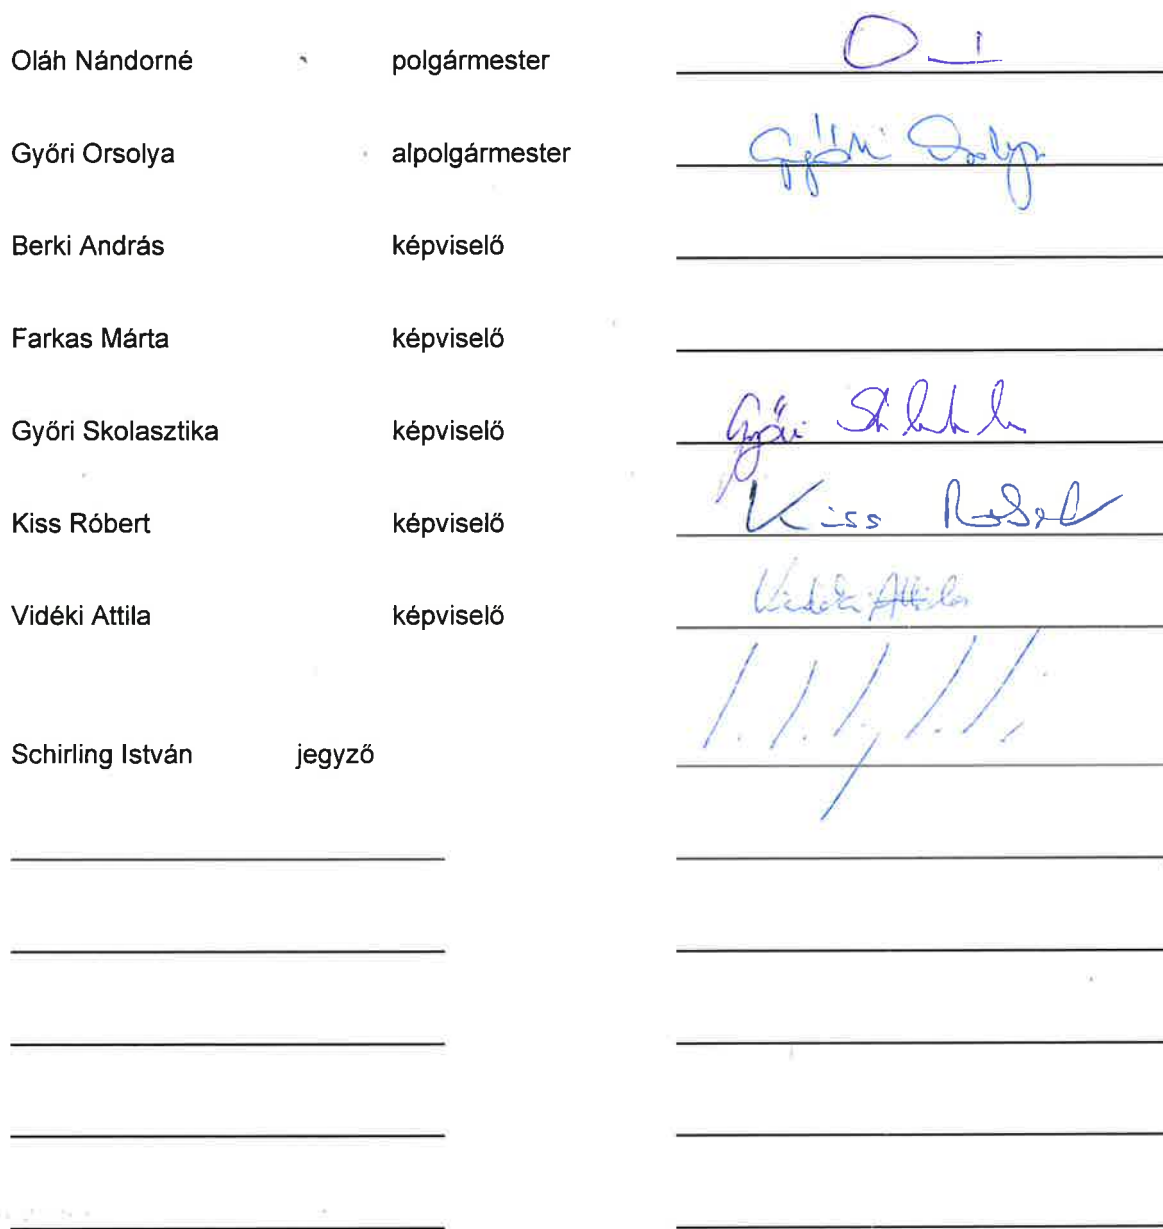 Oláh Nándorné polgármester
Győri Orsolya alpolgármester Győri Orsolya
Berki András képviselő
Farkas Márta képviselő
Győri Skolasztika képviselő Győri
Kiss Róbert képviselő Kiss Róbert
Vidéki Attila képviselő Vidéki Attila
Schirling István jegyző